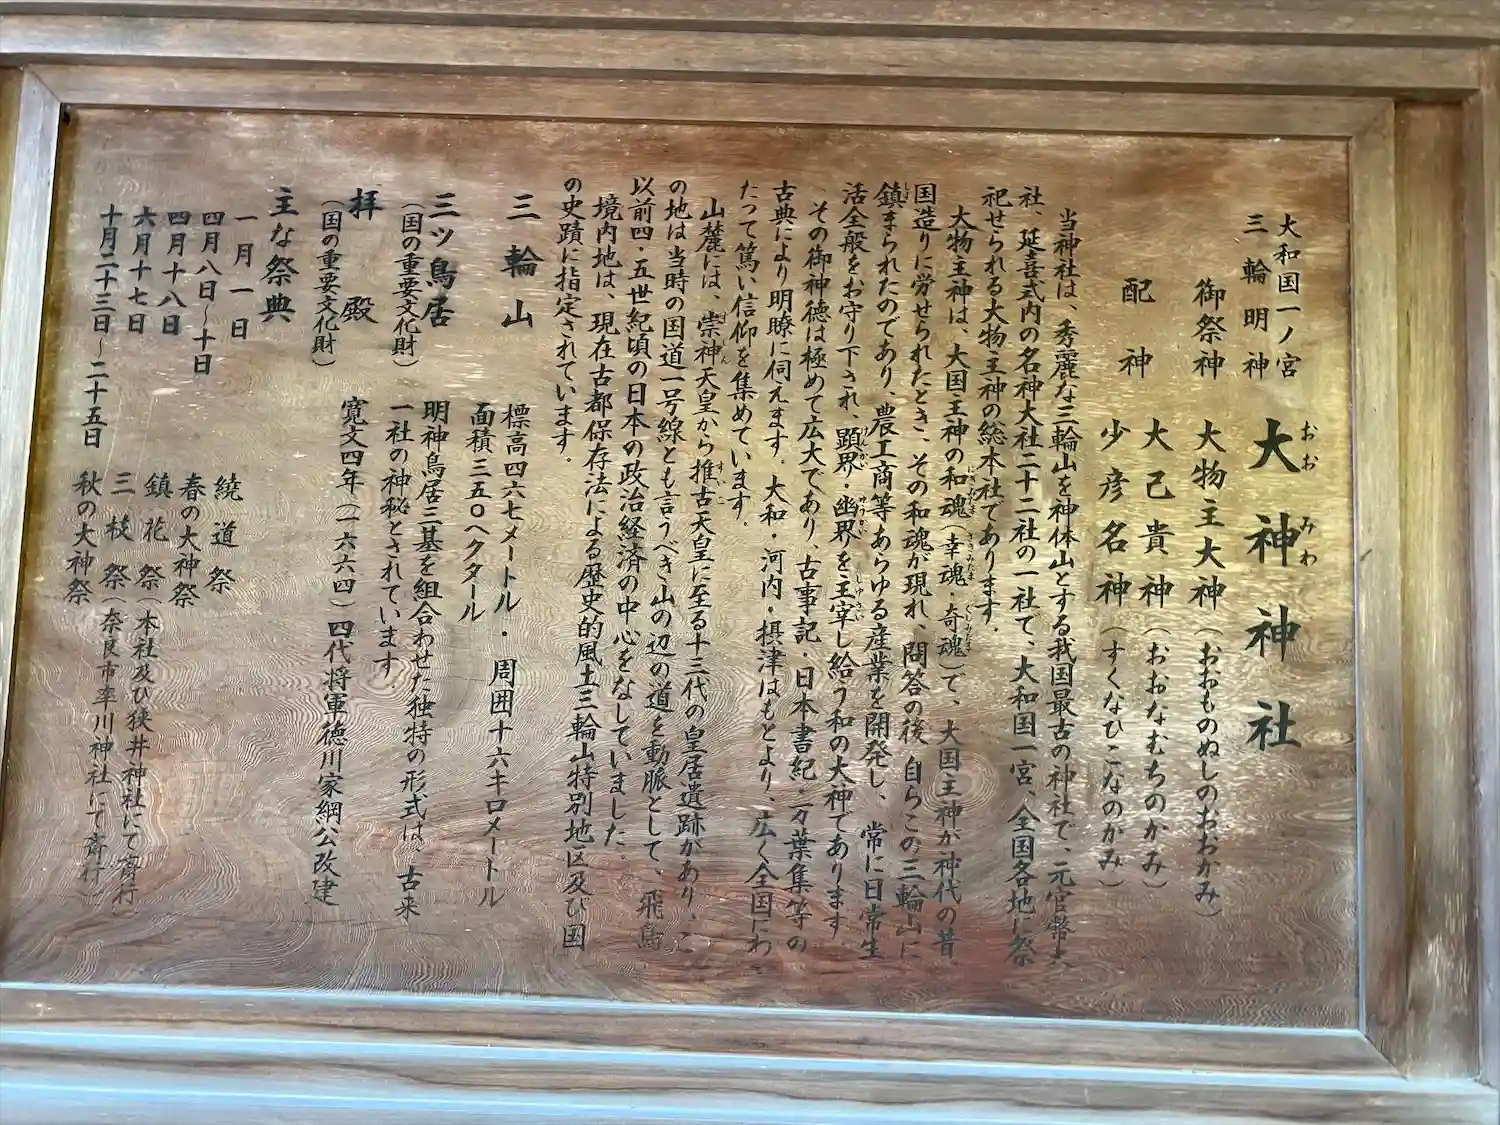 大和国一ノ宮
三輪明神
大神神社
おおみわ
御祭神 大物主大神（おおものぬしのおおかみ）
配神 大己貴神（おおなむちのかみ）
少彦名神（すくなひこなのかみ）
当神社は、秀麗な三輪山を神体山とする我国最古の神社で、元官幣大
社、延喜式内の名神大社二十二社の一社て、大和国一宮、全国各地に祭
祀せられる大物主神の総本社であります．
大物主神は、大国主神の和魂（幸魂・奇魂）で、大国主神が神代の昔、
国造りに労せられたとき、その和魂が現れ、問答の後、自らこの三輪山に
鎮まられたのであり、農工商等あらゆる産業を開発し、常に日常生
活全般をお守り下され、顕界・幽界を主宰し給う和の大神であります
その御神徳は極めて広大であり、古事記・日本書紀・万葉集等の
古典により明瞭に伺えます．大和・河内・摂津はもとより、広く全国にわ
たって篤い信仰を集めています．
山麓には、崇神天皇から推古天皇に至る十三代の皇居遺跡があり、こ
の地は当時の国道一号線とも言うべき山の辺の道を動脈として、飛鳥
以前四・五世紀頃の日本の政治経済の中心をなしていました．
境内地は、現在古都保存法による歴史的風土三輪山特別地区及び国
の史蹟に指定されています．
三輪山 標高四六七メートル・周囲十六キロメートル
面積三五〇ヘクタール
三ツ鳥居 明神鳥居三基を組合わせた独特の形式は、古来
（国の重要文化財） 一社の神秘とされています．
拝殿 寛文四年（一六六四）四代将軍徳川家綱公改建
（国の重要文化財）
主な祭典
一月一日 繞道祭
四月八日～十日 春の大神祭
四月十八日 鎮花祭（本社及び狭井神社にて斎行）
六月十七日 三枝祭（奈良市率川神社にて斎行）
十月二十三日～二十五日 秋の大神祭